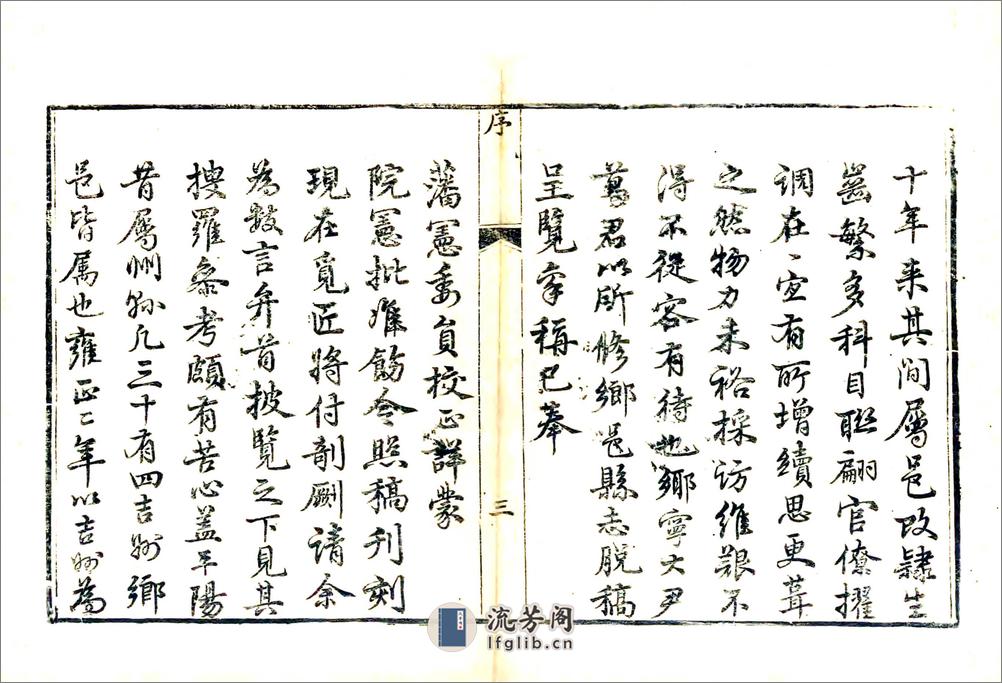 十年来其间屬邑改隸生
齒繁多科目聯翩官僚擢
調在〻宜有所增續思更葺
之然物力未裕採访維艱不
得不從容有待也鄉寧大尹
葛君以所修鄉邑縣志脱稿
呈覽幸稱已奉
藩憲委員校正詳蒙
院憲批准飭令照稿刋刻
現在覓匠將付剞劂请余
為数言弁首披覽之下見其
搜羅參考頗有苦心盖平陽
昔屬州縣凡三十有四吉州鄉
邑皆属也雍正二年以吉州為
序
三
流芳阁
lfglib.cn